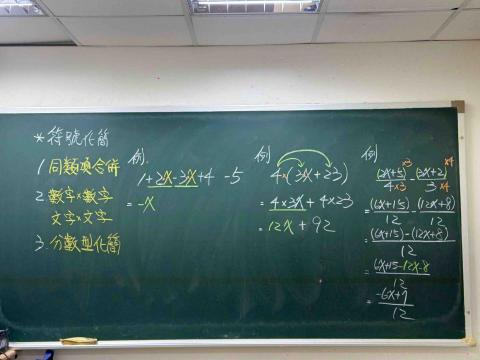 *符號化簡
1.同類項合併
2.數字×數字
文字×文字
3.分數型化簡
例.
1+2X-3X+4-5
=-X
例
4×(3X+23)
=4×3X+4×23
=12X+92
例
(2X+5)×3/4×3-(3X+2)×4/3×4
=(6X+15)/12-(12X+8)/12
=(6X+15)-(12X+8)/12
=6X+15-12X-8/12
=-6X+7/12